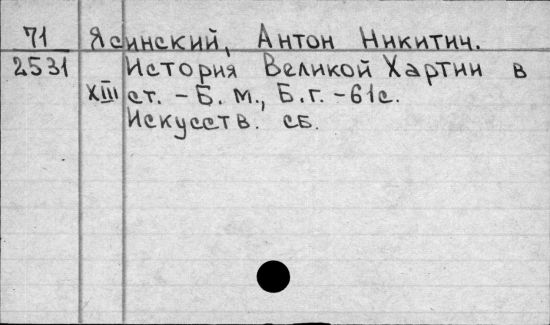 71 Ясинский, Антон Никитич.
2531 История Великой Хартии в
XIII ст. - Б. м., Б. г. - 61с.
Искусств. сб.